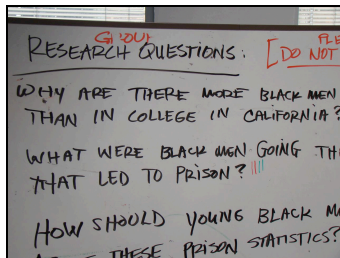 GROUP
RESEARCH QUESTIONS: [DO NOT
WHY ARE THERE MORE BLACK MEN
THAN IN COLLEGE IN CALIFORNIA?
WHAT WERE BLACK MEN GOING
THAT LED TO PRISON?
HOW SHOULD YOUNG BLACK
THESE PRISON STATISTICS?